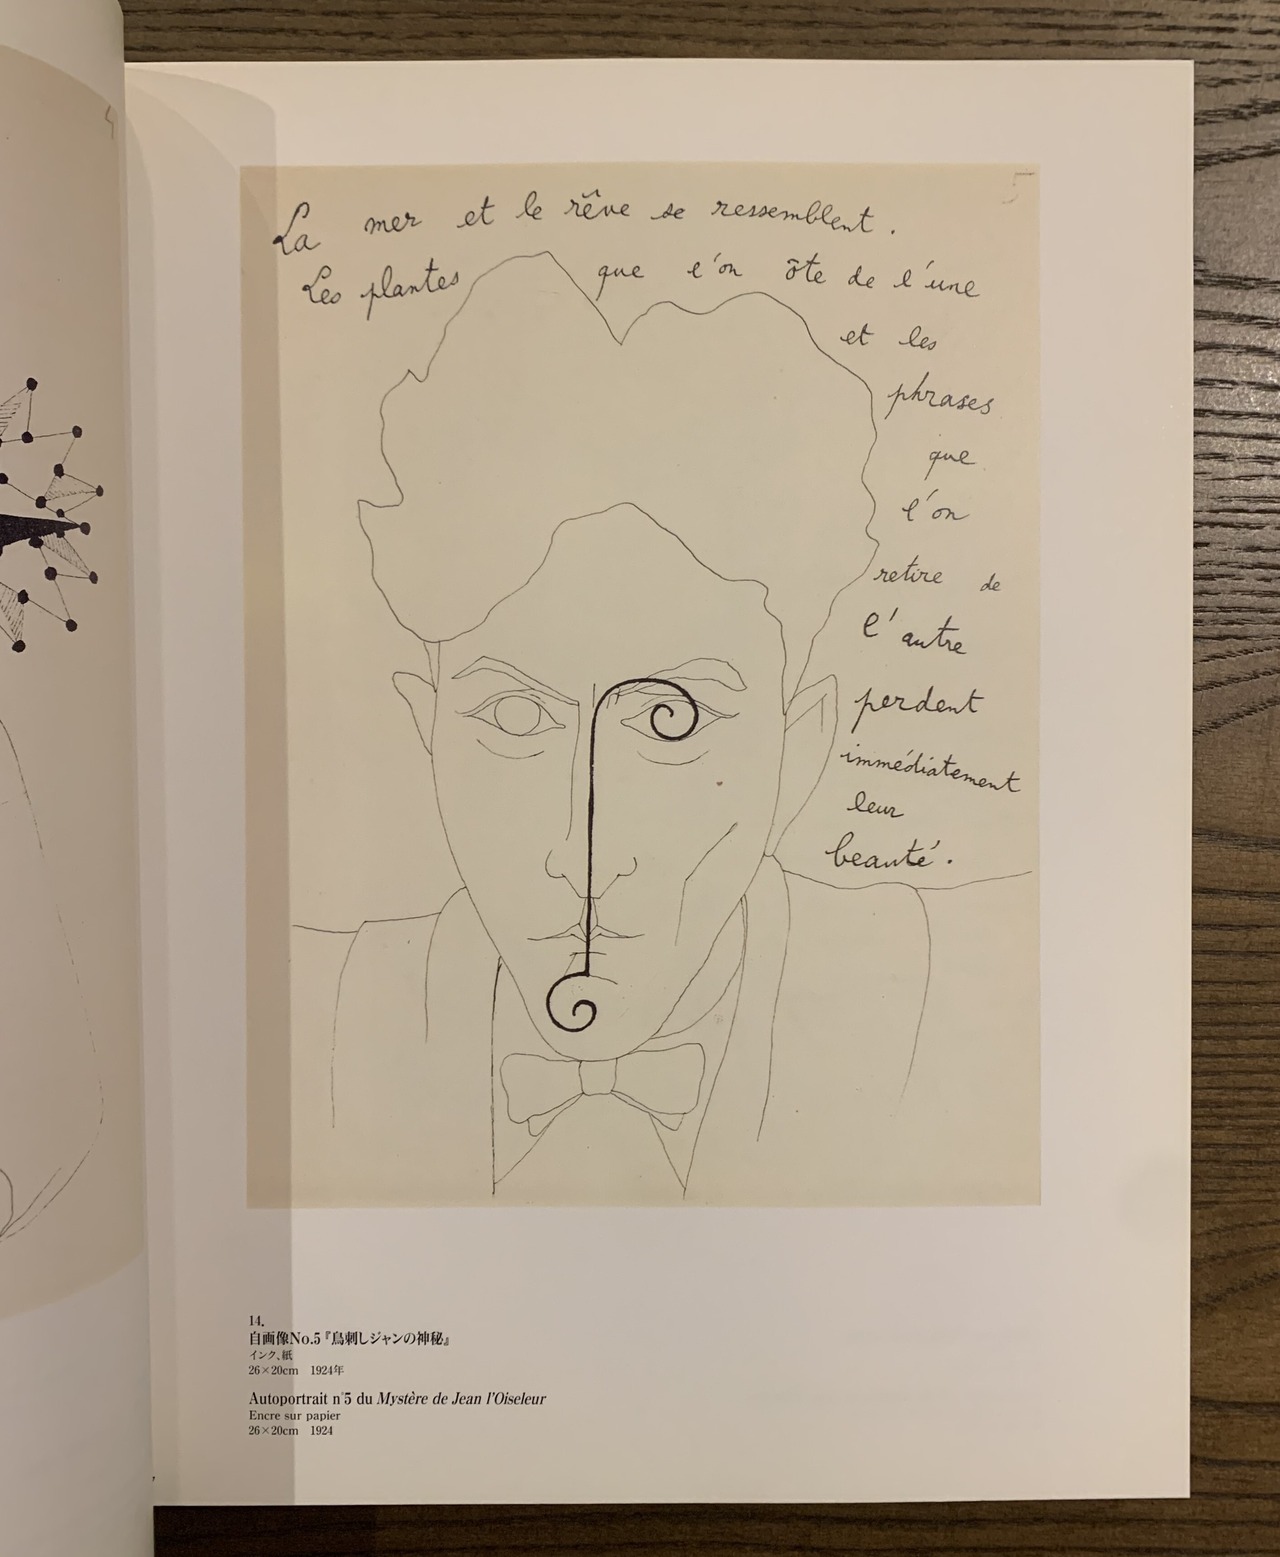 5
La mer et le rêve se ressemblent.
Les plantes que l'on ôte de l'une
et les
phrases
que
l'on
retire de
l'autre
perdent
immédiatement
leur
beauté.
14.
自画像No.5『鳥刺しジャンの神秘』
インク、紙
26×20cm 1924年
Autoportrait n°5 du Mystère de Jean l'Oiseleur
Encre sur papier
26×20cm 1924